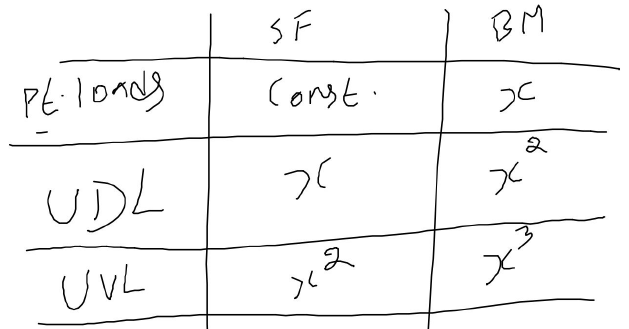 SF BM
Pt. loads Const. x
UDL x x²
UVL x² x³